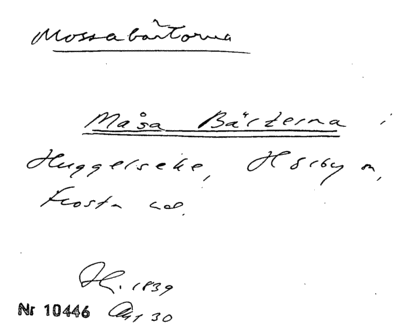 Mossabärtorna
Måsa Bärterna i
Huggelseke, Hörby sn,
Frosta hd.
H. 1839
Nr 10446 30